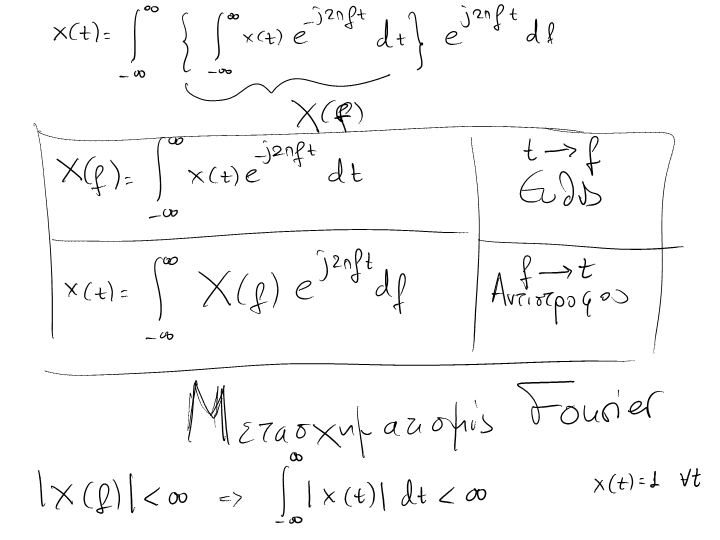 x(t) = ∫_{-∞}^{∞} { ∫_{-∞}^{∞} x(t) e^{-j2πft} dt } e^{j2πft} df
X(f)
X(f) = ∫_{-∞}^{∞} x(t) e^{-j2πft} dt
t → f
Ευθύς
x(t) = ∫_{-∞}^{∞} X(f) e^{j2πft} df
f → t
Αντίστροφος
Μετασχηματισμός Fourier
|X(f)| < ∞ => ∫_{-∞}^{∞} |x(t)| dt < ∞ x(t) = 1 ∀t